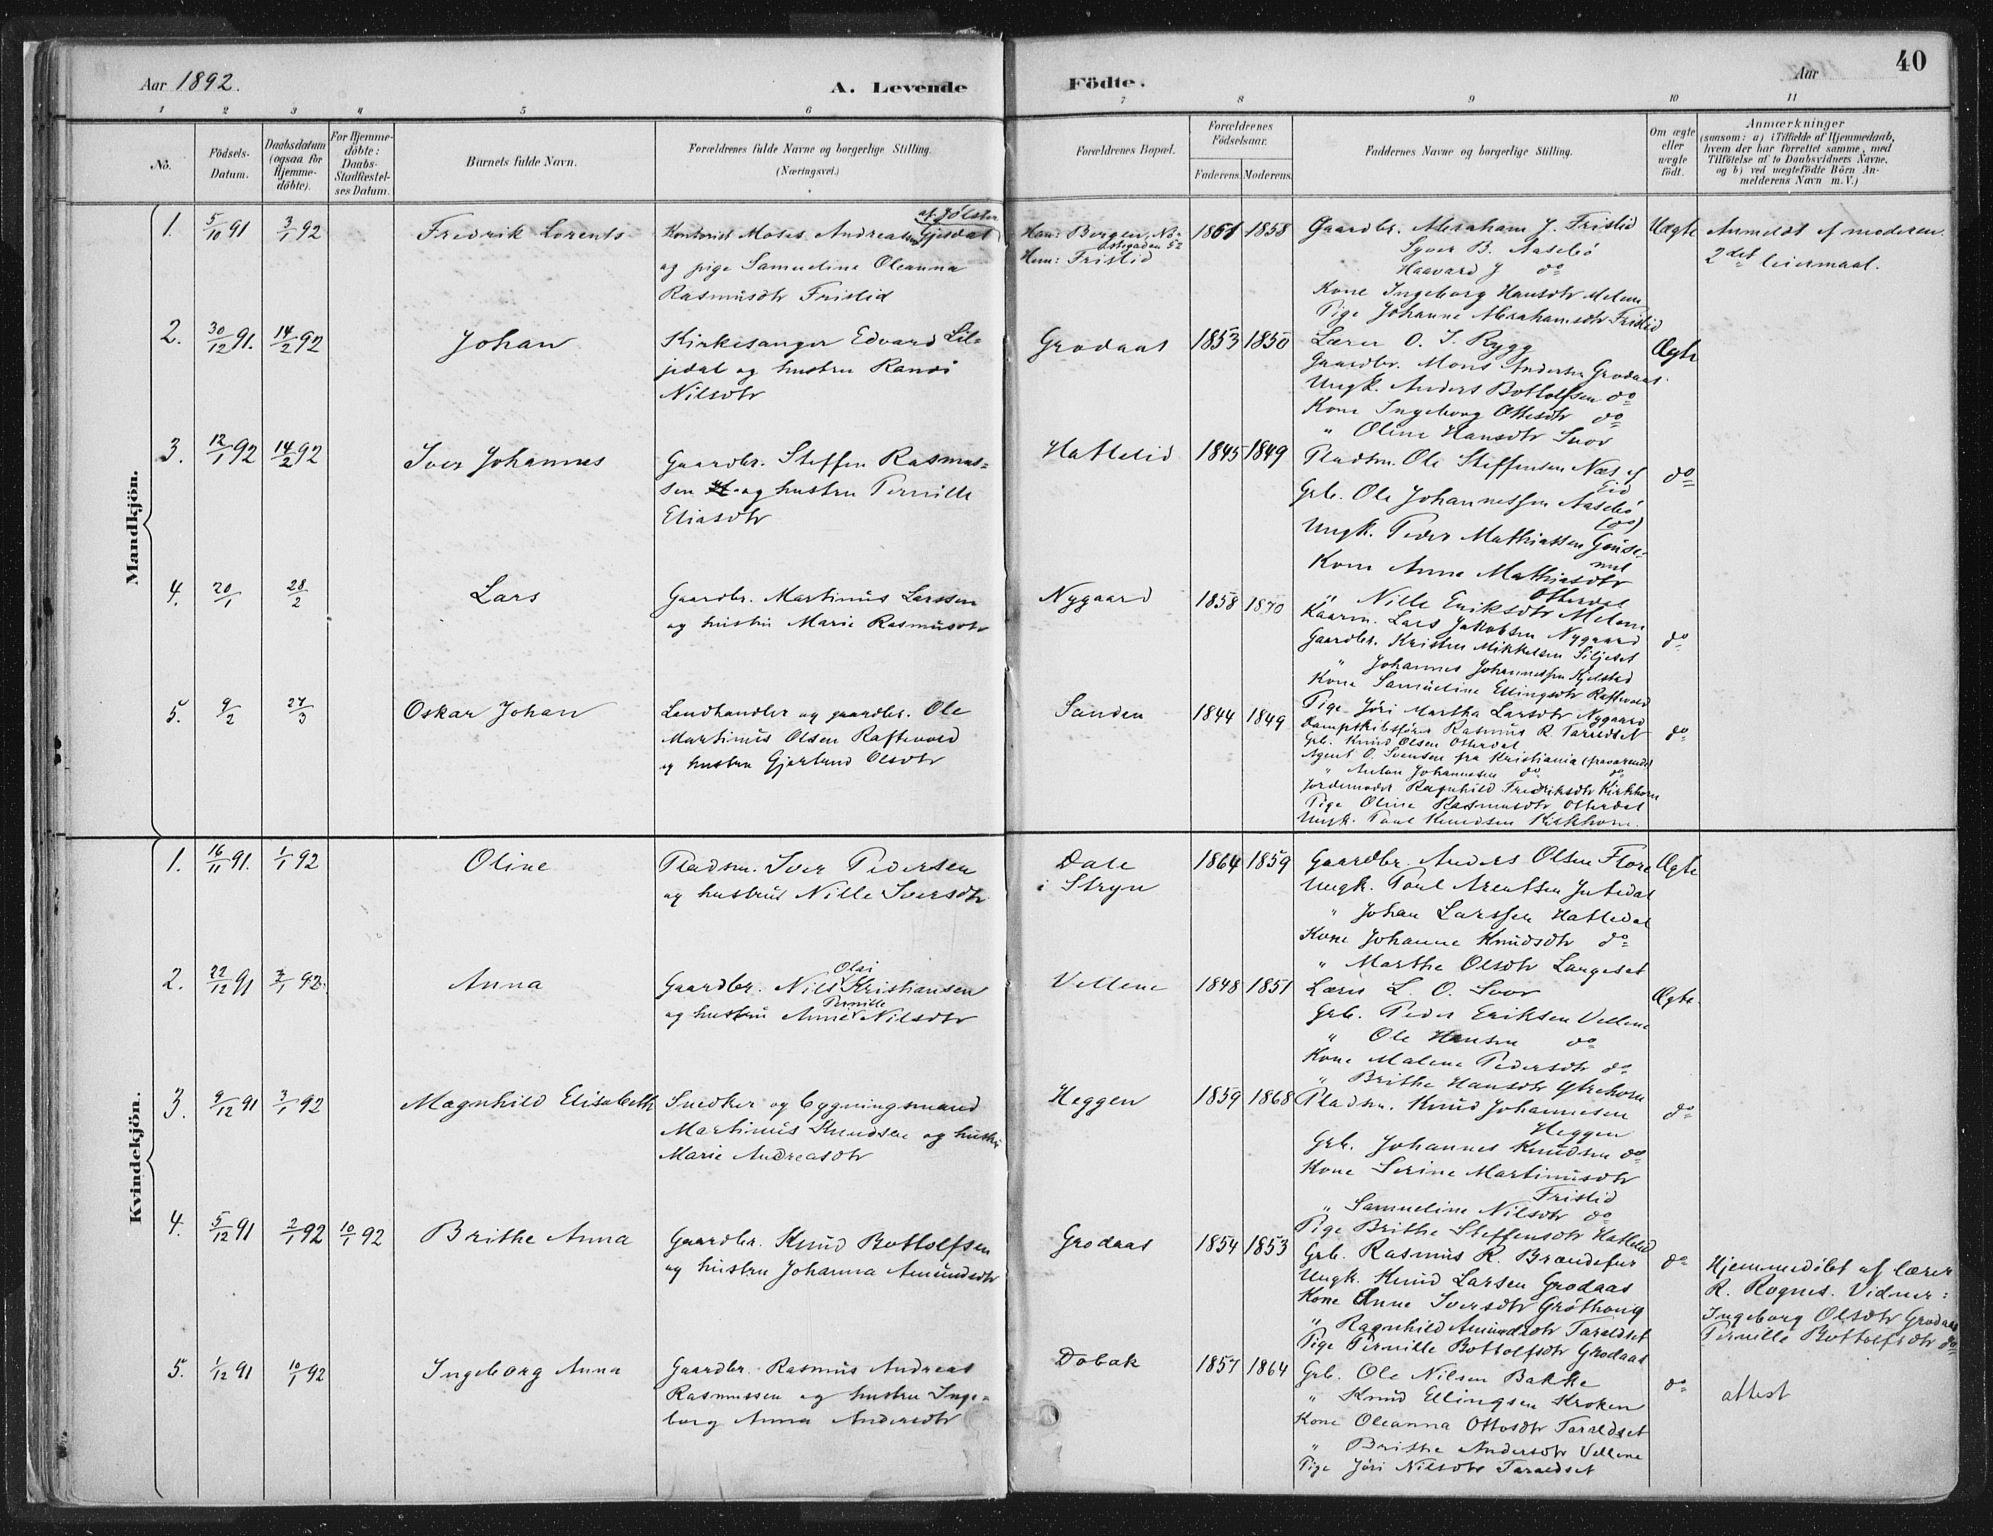 Aar 1892.
A. Levende
Födte.
Aar
40
1 2 3 4 5 6 7 8 9 10 11
No.
Födsels-
Datum.
Daabsdatum
(ogsaa for
Hjemme-
döbte).
For Hjemme-
döbte:
Daabs-
Stadfæstel-
ses Datum.
Barnets fulde Navn.
Forældrenes fulde Navne og borgerlige Stilling.
(Næringsvei.)
Forældrenes Bopæl.
Forældrenes
Födselsaar.
Faderens. Moderens.
Faddernes Navne og borgerlige Stilling.
Om ægte
eller
uægte
født.
Anmærkninger
(saasom: a) i Tilfælde af Hjemmedaab,
hvem der har forrettet samme, med
Tilföielse af to Daabsvidners Navne,
og b) ved uægtefödte Börn An-
melderens Navn m. V.)
Mandkjön.
1. 5/10 91 3/1 92 Fredrik Lorents
Kontorist Moses Andreassen Gjesdal
af Jölster
og pige Samueline Oleanna
Rasmusdtr Fristid
Han: Bergen, No-
stegaden 52
Hun: Fristid
1861 1858
Gaardbr. Abraham J. Fristid
Syver B. Aasebö
Haavard J do
Kone Ingeborg Hansdtr Melem
Pige Johanne Abrahamsdtr Fristid
Uægte
Anmeldt af moderen.
2det leiermaal.
2. 30/12 91. 14/2 92 Johan
Kirkesanger Edvard Lil-
jedal og hustru Randi
Nilsdtr
Grodaas
1853 1850
Lærer O. I. Rygg
Gaardbr. Mons Andersen Grodaas
Ungk. Anders Bottolfsen do
Kone Ingeborg Ottesdtr do
" Oline Hansdtr Svor
Ægte
3. 12/1 92 14/2 92 Iver Johannes
Gaardbr. Steffen Rasmus-
sen og hustru Pernille
Eliasdtr
Hattelid
1845 1849
Pladsm. Ole Steffensen Næs af
Eid
Grb. Ole Johannessen Aasebö
(do)
Ungk. Peder Mathiassen Gause-
mel
Kone Anne Mathiasdtr
Otterdal
" Nille Eriksdtr Melem
do
4. 20/1 28/2 Lars
Gaardbr. Martinus Larssen
og hustru Marie Rasmusdtr
Nygaard
1858 1870
Kaarm. Lars Jakobsen Nygaard
Gaardbr. Kristen Mikkelsen Siljeset
" Johannes Johannessen Kjelstad
Kone Samueline Ellingsdtr Raftevold
Pige Jöri Martha Larsdtr Nygaard
do
5. 9/2 27/3 Oskar Johan
Landhandler og gaardbr. Ole
Martinus Olsen Raftevold
og hustru Gjertrud Olsdtr
Sanden
1844 1849
Dampskibsförer Rasmus R. Taraldset
Grb. Knud Olsen Otterdal
Agent O. Svensen fra Kristiania (fraværende)
" Anton Johannesen do do
Jordemoder Ragnhild Fredriksdtr Kirkhorn
Pige Oline Rasmusdtr Otterdal
Ungk. Paul Knudsen Kirkhorn.
do
Kvindekjön.
1. 16/11 91. 1/1 92 Oline
Pladsm. Iver Pedersen
og hustru Nille Iversdtr
Dale
i Stryn
1864 1859
Gaardbr. Anders Olsen Flore
Ungk. Paul Arentsen Jutedal
" Johan Larssen Hattedal
Kone Johanne Knudsdtr do
" Marthe Olsdtr Langeset
Ægte
2. 22/12 91 3/1 92. Anna
Olai
Gaardbr. Nils Kristiansen
Pernille
og hustru Anne Nilsdtr
Vellene
1848 1851
Lærer L. O. Svor
Grb. Peder Eriksen Vellene
" Ole Hansen do
Kone Malene Pedersdtr do
" Brithe Hansdtr Ytrehorn
Ægte.
3. 9/12 91 3/1 92 Magnhild Elisabeth
Snedker og bygningsmand
Martinus Knudsen og hustru
Marie Andreasdtr
Heggen
1859 1868
Pladsm. Knud Johannesen
Heggen
Grb. Johannes Knudsen do
Kone Serine Martinusdtr
Fristid
" Samueline Nilsdtr do
Pige Brithe Steffensdtr Hattelid
do
4. 5/12 91 2/1 92 10/1 92 Brithe Anna
Gaardbr. Knud Bottolfsen
og hustru Johanna Amundsdtr
Grodaas
1854 1853
Grb. Rasmus R. Brændefur
Ungk. Knud Larsen Grodaas
Kone Anne Iversdtr Gröthaug
" Ragnhild Amundsdtr Taraldset
Pige Pernille Bottolfsdtr Grodaas
do
Hjemmedöbt af lærer
R. Rognes. Vidner:
Ingeborg Olsdtr Grodaas
Pernille Bottolfsdtr do
5. 1/12 91 10/1 92 Ingeborg Anna
Gaardbr. Rasmus Andreas
Rasmussen og hustru Inge-
borg Anna Andersdtr
Dobak
1857 1864
Grb. Ole Nilsen Bakke
" Knud Ellingsen Kroken
Kone Oleanna Ottosdtr Taraldset
" Brithe Andersdtr Vellene
Pige Jöri Nilsdtr Taraldset
do
attest